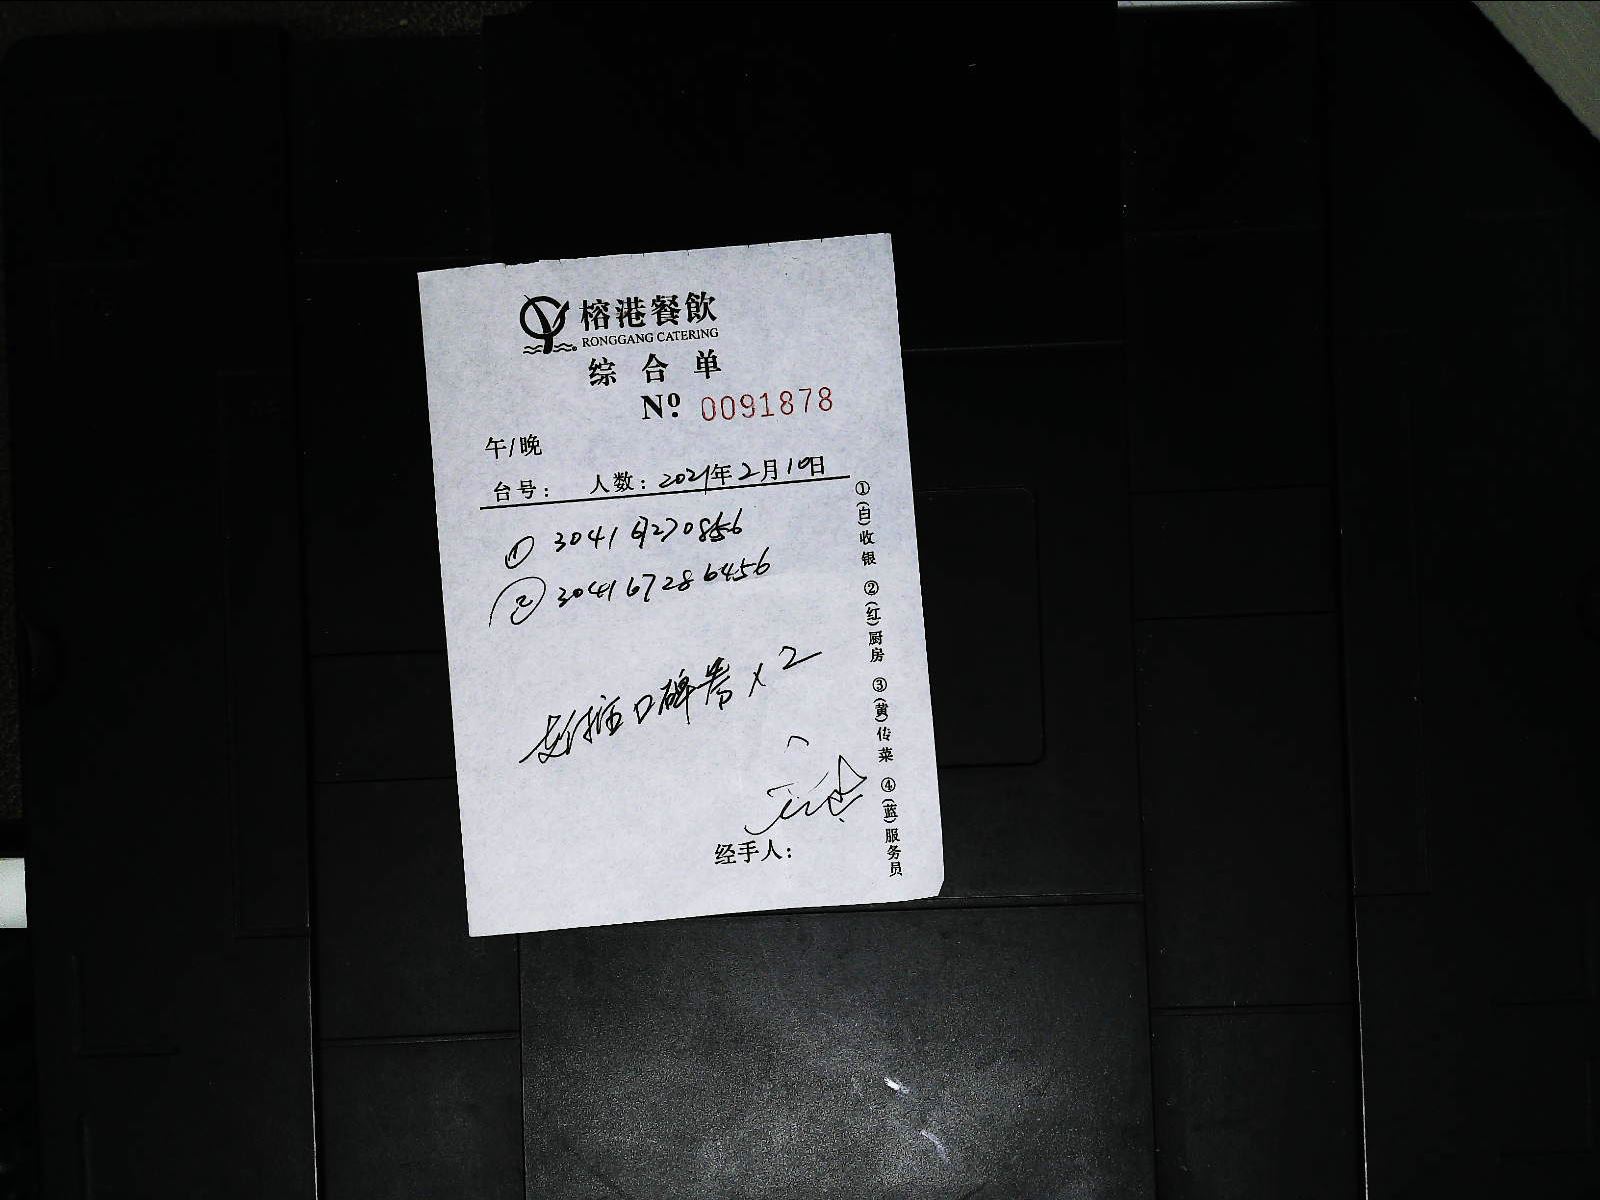 榕港餐飲
RONGGANG CATERING
综合单
Nº 0091878
午/晚
台号: 人数: 2021年2月10日
① 304167270856
② 304167286456
口碑券x2
经手人:
①(白)收银 ②(红)厨房 ③(黄)传菜 ④(蓝)服务员